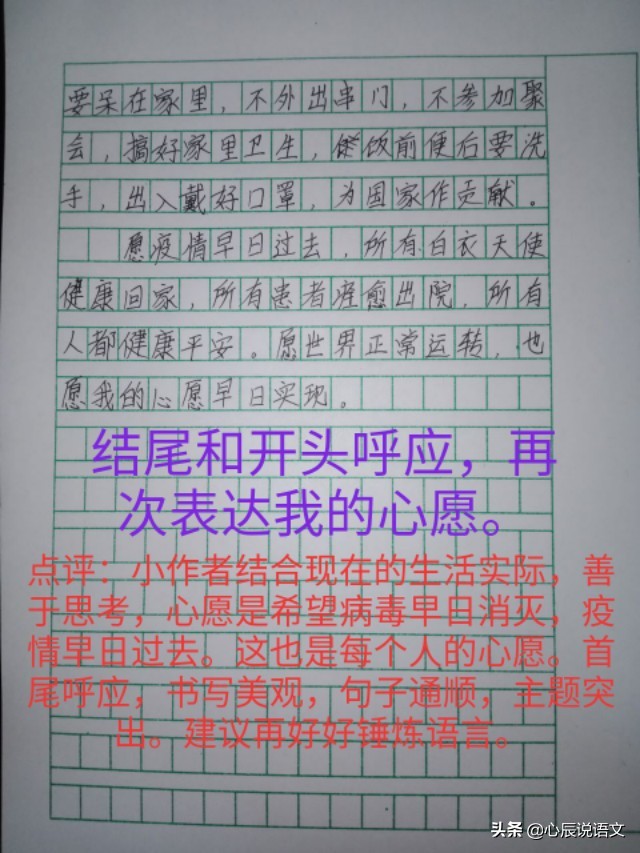 要呆在家里，不外出串门，不参加聚
会，搞好家里卫生，饭前便后要洗
手，出入戴好口罩，为国家作贡献。
愿疫情早日过去，所有白衣天使
健康回家，所有患者痊愈出院，所有
人都健康平安。愿世界正常运转，也
愿我的心愿早日实现。
结尾和开头呼应，再
次表达我的心愿。
点评：小作者结合现在的生活实际，善
于思考，心愿是希望病毒早日消灭，疫
情早日过去。这也是每个人的心愿。首
尾呼应，书写美观，句子通顺，主题突
出。建议再好好锤炼语言。
头条 @心辰说语文